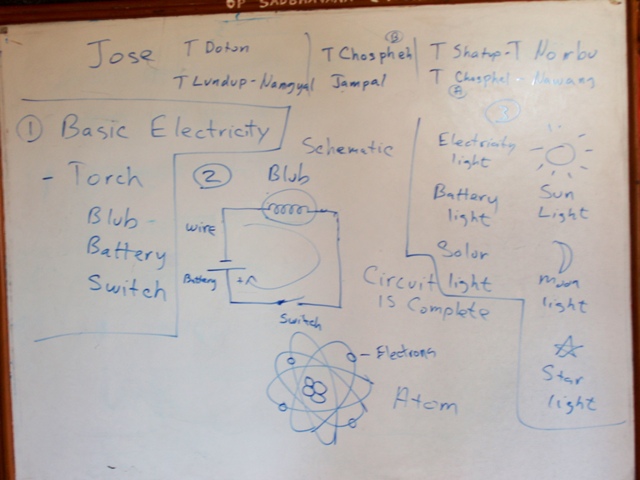 Jose
T Doton
T Lundup-Namgyal
T Chosphel B
Jampal
T Shatup-T Norbu
T Chosphel - Nawang
A
1 Basic Electricity
- Torch
Blub -
Battery
Switch
2
Schematic
Blub
wire
Battery
Switch
Circuit
is Complete
- Electrons
Atom
3
Electricity
light
Battery
light
Solar
light
Sun
Light
moon
light
Star
light